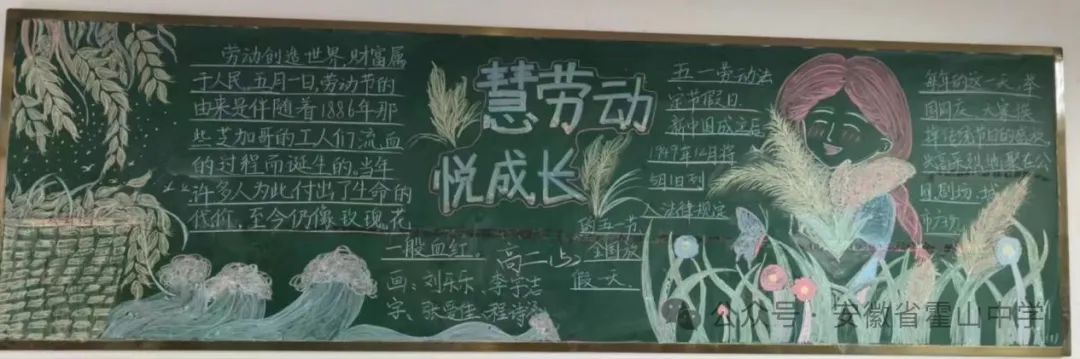 劳动创造世界,财富属
于人民,五月一日,劳动节的
由来是伴随着1886年那
些芝加哥的工人们流血
的过程而诞生的。当年
许多人为此付出了生命的
代价,至今仍像玫瑰花
一般血红。
慧劳动
悦成长
高二(5)
画:刘乐乐、李宇洁
字:
五一劳动法
定节假日.
新中国成立后
1949年12月将
5月1日列
入法律规定
的五一节
全国放
假一天.
每年的这一天,举
国同庆,大家换
公众号·安徽省霍山中学